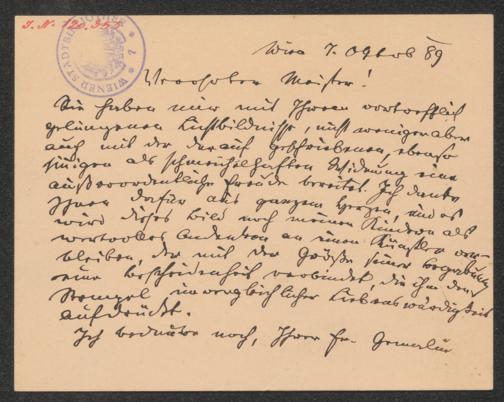 J. N. 120.355
WIENER STADTBIBLIOTHEK
Wien 7. Oktob 89
Verehrter Meister!
Sie haben mir mit Ihrem vortrefflich
gelungenen Lichtbildnisse, nicht weniger aber
auch mit der darauf geschriebenen, ebenso
sinnigen als schmeichelhaften Widmung eine
außerordentliche Freude bereitet. Ich danke
Ihnen dafür aus ganzem Herzen, und es
wird dieses Bild noch meinen Kindern als
wertvolles Andenken an einen Künstler ver-
bleiben, der mit der Größe seiner Begabung
eine Bescheidenheit verbindet, die ihm den
Stempel unvergleichlicher Liebenswürdigkeit
aufdrückt.
Ich bedaure noch, Ihrer Fr. Gemalin